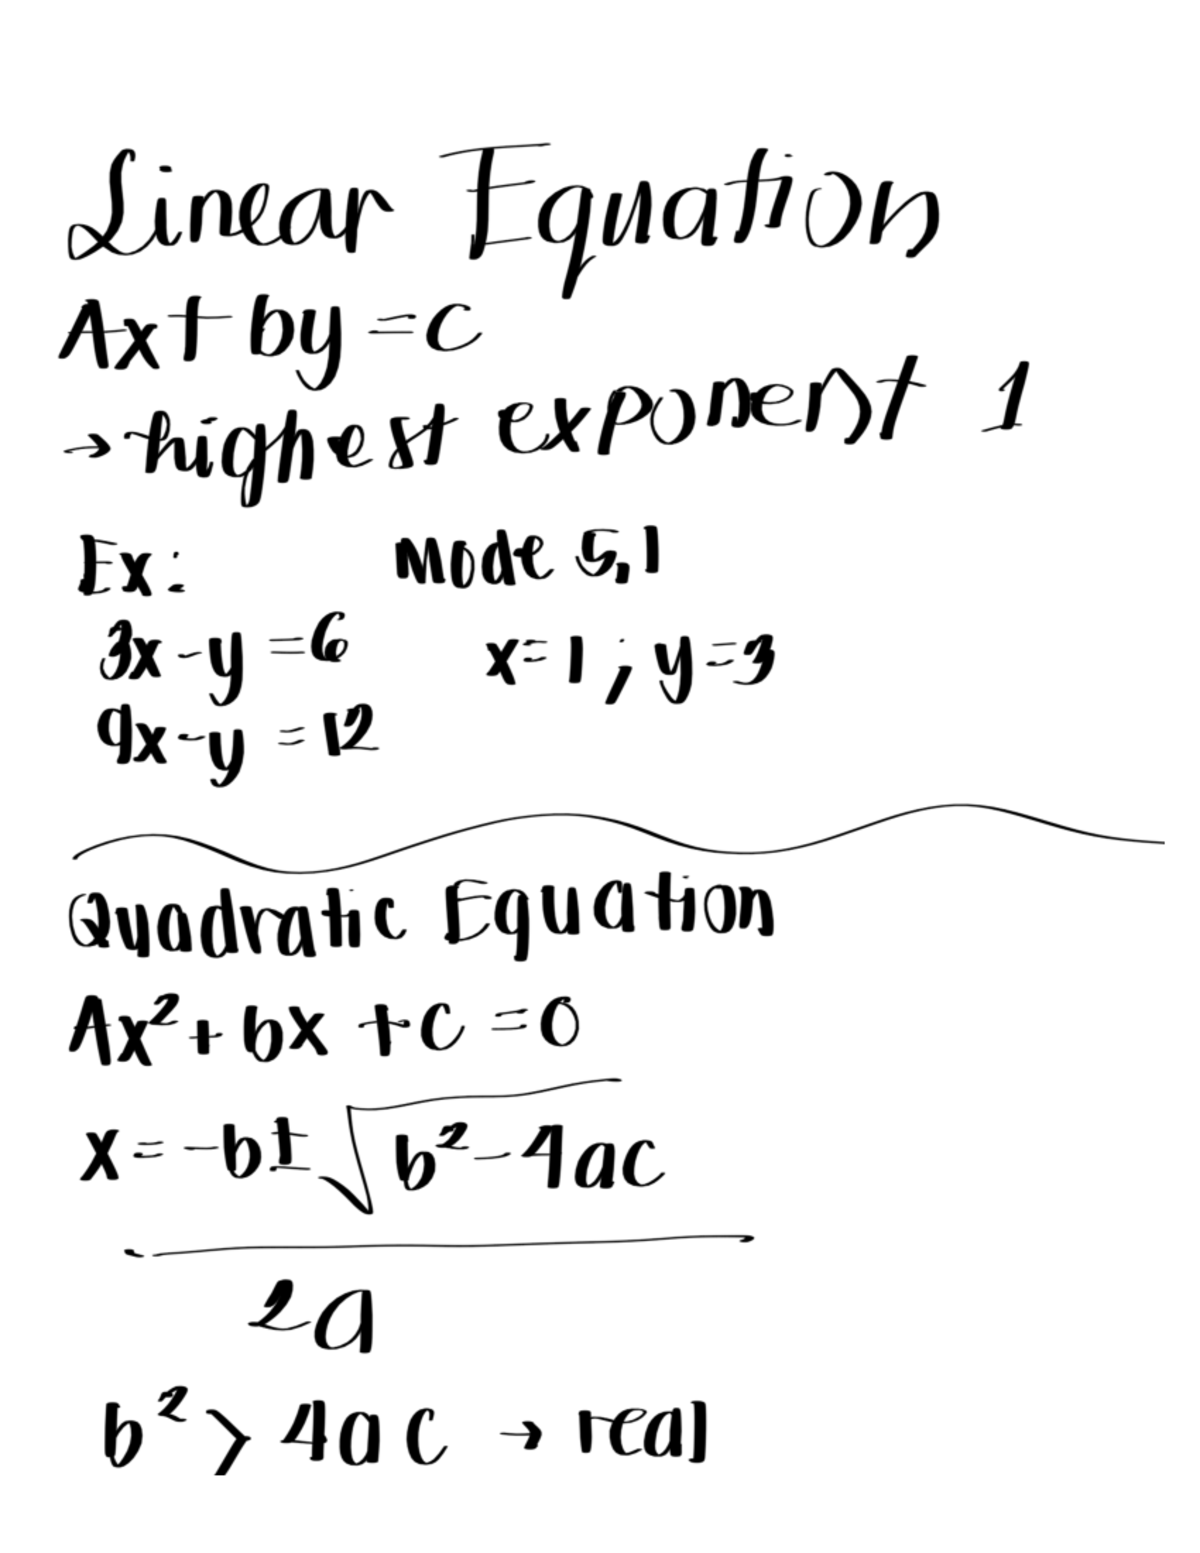 Linear Equation
Ax + by = c
→ highest exponent 1
Ex: Mode 5,1
3x - y = 6 x = 1 ; y = 3
9x - y = 12
Quadratic Equation
Ax² + bx + c = 0
x = -b ± √b² - 4ac
2a
b² > 4ac → real